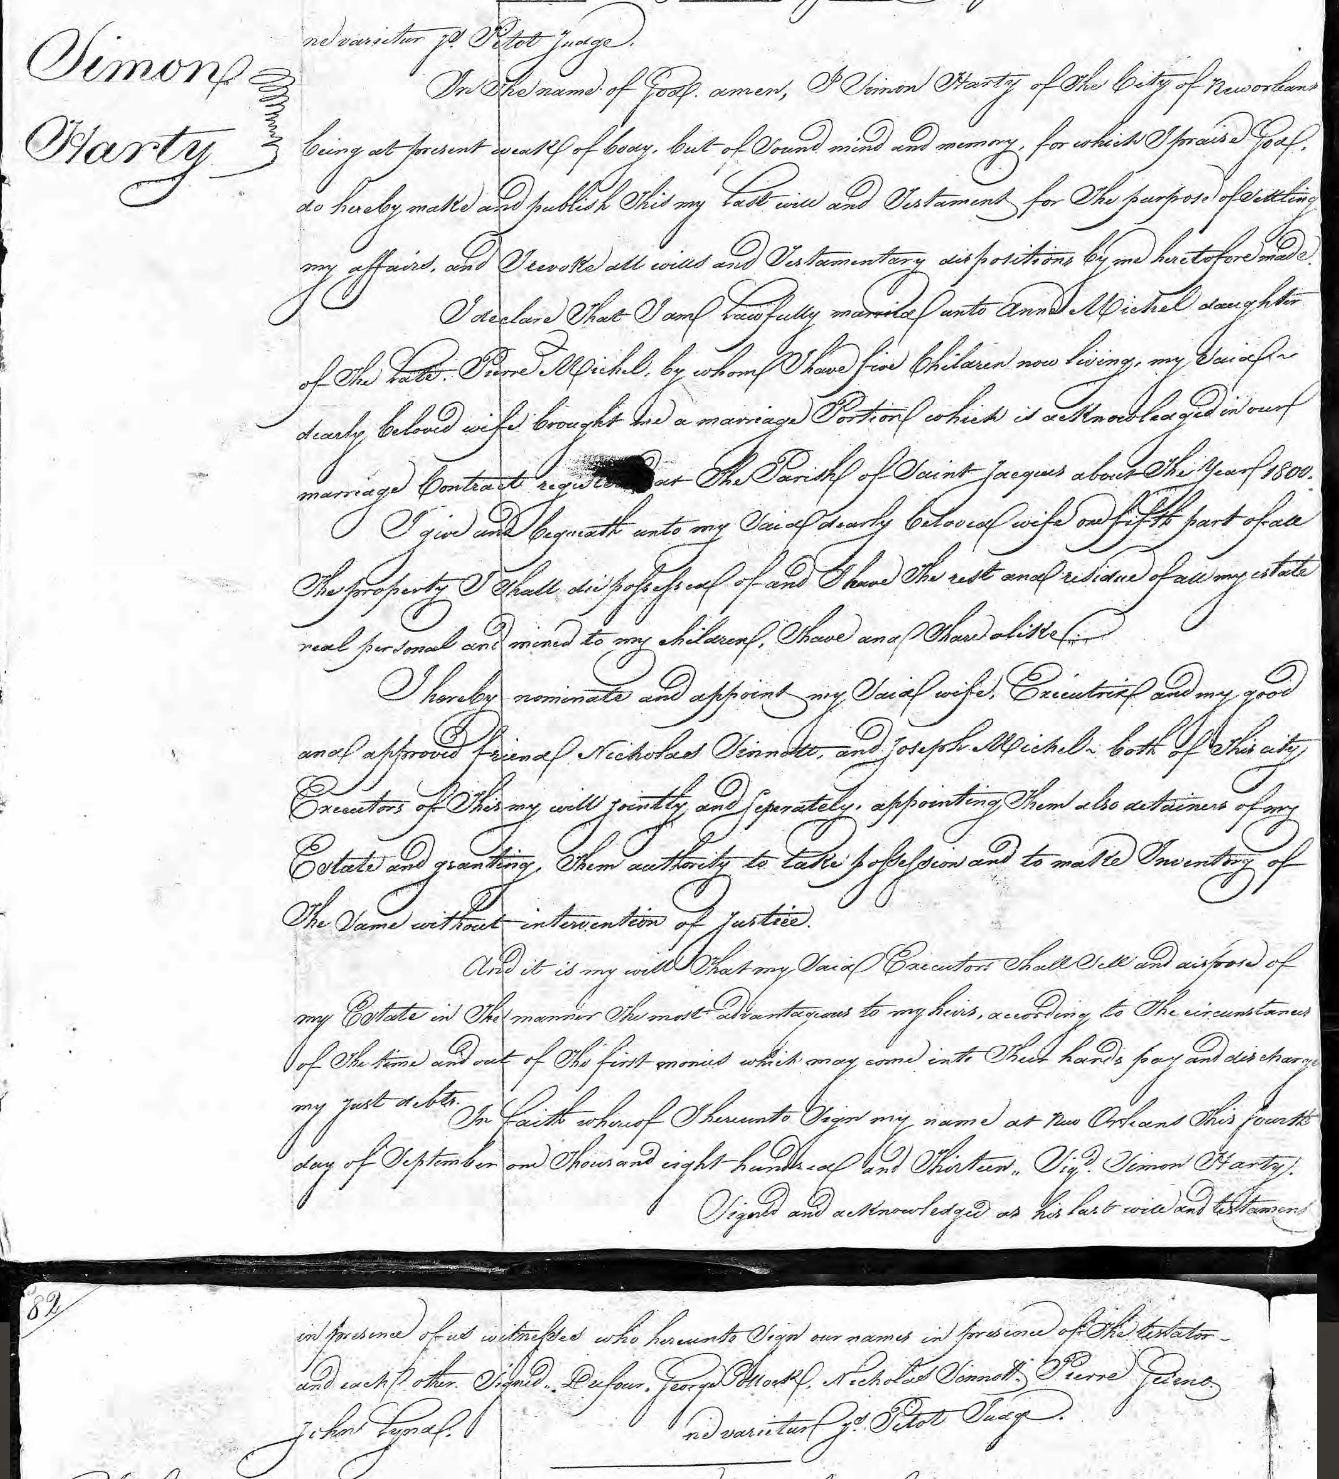 Simon
Harty
ne varietur js. Pitot Judge.
In the name of God. amen, I Simon Harty of the City of New orleans
being at present weak of body, but of Sound mind and memory, for which I praise God,
do hereby make and publish this my Last will and Testament for the purpose of Settling
my affairs, and I revoke all wills and Testamentary dispositions by me heretofore made.
I declare That I am Lawfully married unto Anne Michel daughter
of the Late Pierre Michel, by whom I have five Children now living, my Said
dearly beloved wife brought me a marriage Portion which is acknowledged in our
marriage Contract at The Parish of Saint Jacques about The Year 1800.
I give and bequeath unto my Said dearly beloved wife one fifth part of all
The property I Shall die possessed of and I leave The rest and residue of all my estate
real personal and mixed to my children, Share and Share alike.
I hereby nominate and appoint my Said wife, Executrix and my good
and approved friend Nicholas Sinnott, and Joseph Michel both of This city
Executors of This my will jointly and Seperately, appointing Them also detainers of my
Estate and granting Them authority to take possession and to make Inventory of
The Same without intervention of Justice.
And it is my will That my Said Executors Shall Sell and dispose of
my Estate in The manner The most advantageous to my heirs, according to The circumstances
of The time and out of The first monies which may come into Their hands pay and discharge
my just debts.
In faith whereof I hereunto Sign my name at New Orleans This fourth
day of September one Thousand eight hundred and Thirteen. Sigd. Simon Harty.
Signed and acknowledged as his last will and testament
82
in presence of us witnesses who hereunto Sign our names in presence of The testator
and each other. Signed. Dufour, George Pollock, Nicholas Sinnott, Pierre
John Lynd.
ne varietur js. Pitot Judge.